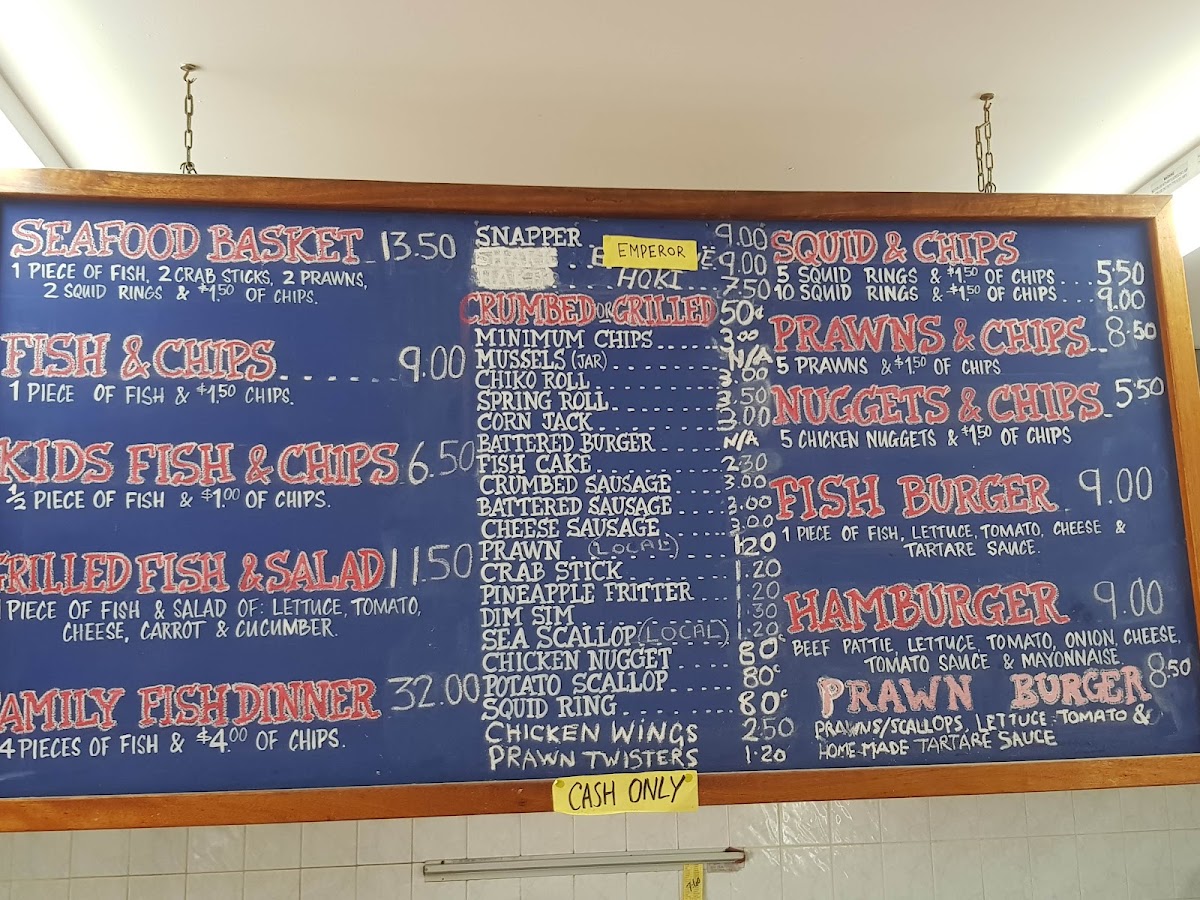 SEAFOOD BASKET 13.50
1 PIECE OF FISH, 2 CRAB STICKS, 2 PRAWNS,
2 SQUID RINGS & $1.50 OF CHIPS.
FISH & CHIPS 9.00
1 PIECE OF FISH & $1.50 CHIPS.
KIDS FISH & CHIPS 6.50
1/2 PIECE OF FISH & $1.00 OF CHIPS.
GRILLED FISH & SALAD 11.50
PIECE OF FISH & SALAD OF: LETTUCE, TOMATO,
CHEESE, CARROT & CUCUMBER.
FAMILY FISH DINNER 32.00
4 PIECES OF FISH & $4.00 OF CHIPS.
SNAPPER 9.00
EMPEROR 9.00
HOKI 7.50
CRUMBED OR GRILLED 50¢
MINIMUM CHIPS 3.00
MUSSELS (JAR) N/A
CHIKO ROLL 3.00
SPRING ROLL 3.50
CORN JACK 3.00
BATTERED BURGER N/A
FISH CAKE 2.30
CRUMBED SAUSAGE 3.00
BATTERED SAUSAGE 3.00
CHEESE SAUSAGE 3.00
PRAWN (LOCAL) 1.20
CRAB STICK 1.20
PINEAPPLE FRITTER 1.20
DIM SIM 1.30
SEA SCALLOP (LOCAL) 1.20
CHICKEN NUGGET 80¢
POTATO SCALLOP 80¢
SQUID RING 80¢
CHICKEN WINGS 2.50
PRAWN TWISTERS 1.20
SQUID & CHIPS
5 SQUID RINGS & $1.50 OF CHIPS 5.50
10 SQUID RINGS & $1.50 OF CHIPS 9.00
PRAWNS & CHIPS 8.50
5 PRAWNS & $1.50 OF CHIPS
NUGGETS & CHIPS 5.50
5 CHICKEN NUGGETS & $1.50 OF CHIPS
FISH BURGER 9.00
1 PIECE OF FISH, LETTUCE, TOMATO, CHEESE &
TARTARE SAUCE.
HAMBURGER 9.00
BEEF PATTIE, LETTUCE, TOMATO, ONION, CHEESE,
TOMATO SAUCE & MAYONNAISE
PRAWN BURGER 8.50
PRAWNS/SCALLOPS, LETTUCE, TOMATO &
HOME-MADE TARTARE SAUCE
CASH ONLY